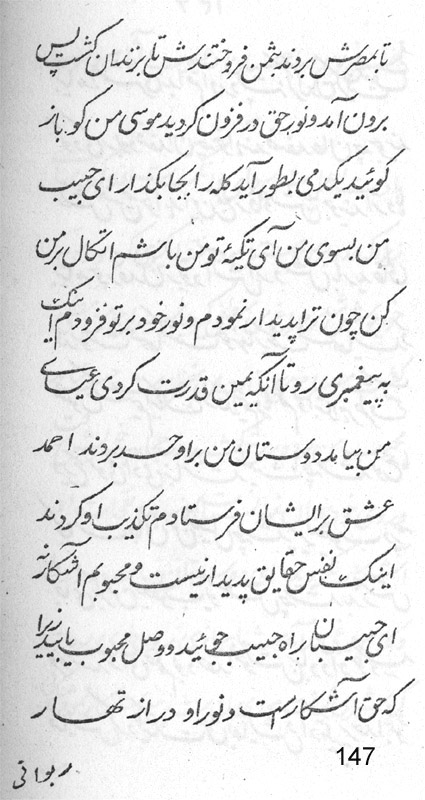 تا بمصرش بردند بثمن فروختندش تا بزندان گشت پس
برون آمد و نور حق در فزون گردید موسی من کو باز
گوئید یکدمی بطور آید کله را بجا بگذار ای حبیب
من بسوی من آی تکیهٔ تو من باشم اتکال بر من
کن چون ترا پدیدار نمودم و نور خود بر تو فزودم اینک
به پیغمبری رو تا آنکه یمین قدرت کردی عیسای
من بیامد دوستان من بر او حسد بردند احمد
عشق بر ایشان فرستادم تکذیب او کردند
اینک نفس حقایق پدیدار نیست و محبوبم آشکار نه
ای حبیبان راه حبیب جوئید و وصل محبوب یابید زیرا
که حق آشکار است و نور او در ازتهار
ربوائی
147